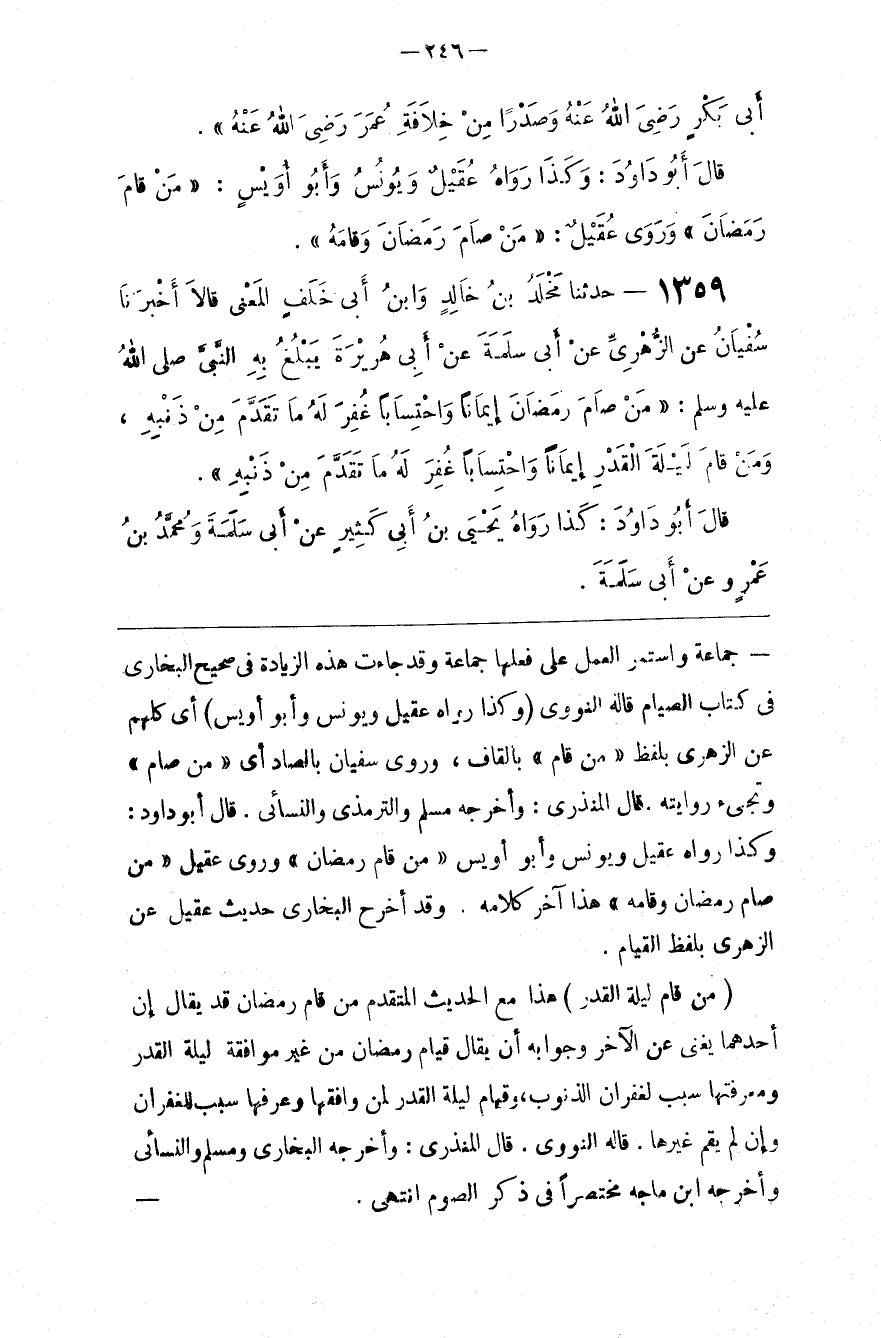 — ٢٤٦ —
أَبى بَكْرٍ رَضِىَ اللهُ عَنْهُ وَصَدْرًا مِنْ خِلاَفَةِ عُمَرَ رَضِىَ اللهُ عَنْهُ » .
قالَ أَبُو دَاوُدَ : وَكَذَا رَوَاهُ عُقَيْلٌ وَيُونُسُ وَأَبُو أُوَيْسٍ : « مَنْ قامَ
رَمَضَانَ » وَرَوَى عُقَيْلٌ : « مَنْ صَامَ رَمَضَانَ وَقامَهُ » .
١٣٥٩ — حدثنا مَخْلَدُ بنُ خَالِدٍ وَابنُ أَبى خَلَفٍ المَعْنٰى قالاَ أَخْبرَنَا
سُفْيَانُ عن الزُّهْرِىِّ عنْ أَبى سَلَمَةَ عنْ أَبِى هُرِيْرَةَ يَبْلُغُ بِهِ النَّبىَّ صلى اللهُ
عليه وسلم : « مَنْ صَامَ رمَضَانَ إِيمَاناً وَاحْتِسَاباً غُفِرَ لَهُ ما تَقَدَّمَ مِنْ ذَنْبِهِ ،
وَمَنْ قامَ لَيْلَةَ الْقَدْرِ إِيمَاناً وَاحْتِسَاباً غُفِرَ لَهُ ما تَقَدَّمَ مِنْ ذَنْبِهِ » .
قالَ أَبُو دَاوُدَ : كَذا رَوَاهُ يَحْيَى بنُ أَبِي كَثِيرٍ عنْ أَبى سَلَمَةَ وَمُحمَّدُ بنُ
عَمْرٍ و عنْ أَبى سَلَمَةَ .
— جماعة واستمر العمل على فعلها جماعة وقد جاءت هذه الزيادة فى صحيح البخارى
فى كتاب الصيام قاله النووى (وكذا رواه عقيل ويونس وأبو أويس) أى كلهم
عن الزهرى بلفظ « من قام » بالقاف ، وروى سفيان بالصاد أى « من صام »
وتجىء روايته . قال المنذرى : وأخرجه مسلم والترمذى والنسائى . قال أبو داود :
وكذا رواه عقيل ويونس وأبو أويس « من قام رمضان » وروى عقيل « من
صام رمضان وقامه » هذا آخر كلامه . وقد أخرح البخارى حديث عقيل عن
الزهرى بلفظ القيام .
( من قام ليلة القدر ) هذا مع الحديث المتقدم من قام رمضان قد يقال إن
أحدهما يغنى عن الآخر وجوابه أن يقال قيام رمضان من غير موافقة ليلة القدر
ومعرفتها سبب لغفران الذنوب، وقيام ليلة القدر لمن وافقها وعرفها سبب للغفران
وإن لم يقم غيرها . قاله النووى . قال المنذرى : وأخرجه البخارى ومسلم والنسائى
وأخرجه ابن ماجه مختصراً فى ذكر الصوم انتهى . —